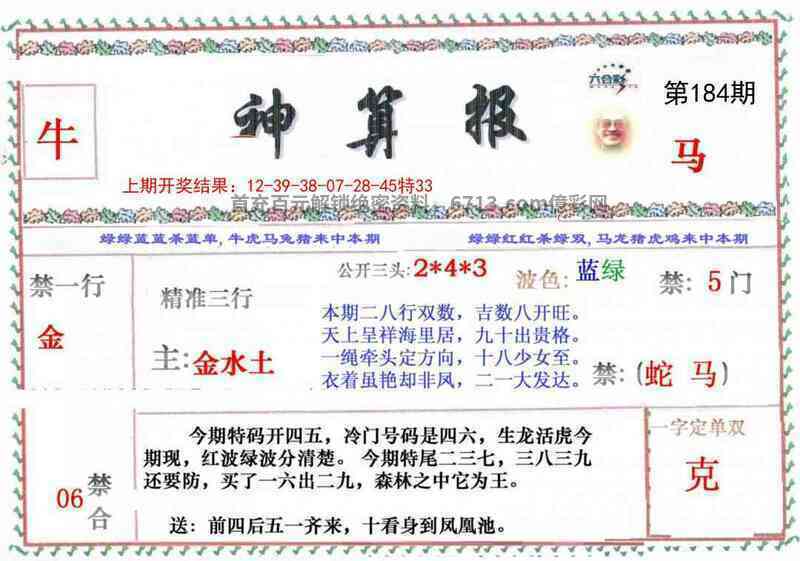 六合彩
第184期
牛
神算报
马
上期开奖结果：12-39-38-07-28-45特33
首充百元解锁绝密资料：6713.com億彩网
绿绿蓝蓝杀蓝单,牛虎马兔猪来中本期
绿绿红红杀绿双,马龙猪虎鸡来中本期
禁一行
金
精准三行
主:金水土
公开三头:2*4*3
波色:蓝绿
禁:5门
本期二八行双数，吉数八开旺。
天上呈祥海里居，九十出贵格。
一绳牵头定方向，十八少女至。
衣着虽艳却非凤，二一大发达。
禁:(蛇 马)
06禁合
今期特码开四五，冷门号码是四六，生龙活虎今
期现，红波绿波分清楚。今期特尾二三七，三八三九
还要防，买了一六出二九，森林之中它为王。
送：前四后五一齐来，十看身到凤凰池。
一字定单双
克